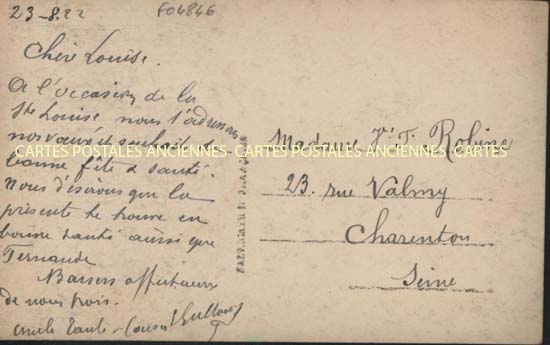 23-8-22
F04846
Chère Louise.
A l'occasion de la
Ste Louise nous t'adressons
nos vœux et souhaits de
bonne fête & santé.
Nous désirons que la
présente te trouve en
bonne santé aussi que
Fernande
Baisers affectueux
de nous trois.
oncle Tante - Cousin
Madame Vve T. Robine
23. rue Valmy
Charenton
Seine
CARTES POSTALES ANCIENNES - CARTES POSTALES ANCIENNES - CARTES POSTALES ANCIENNES